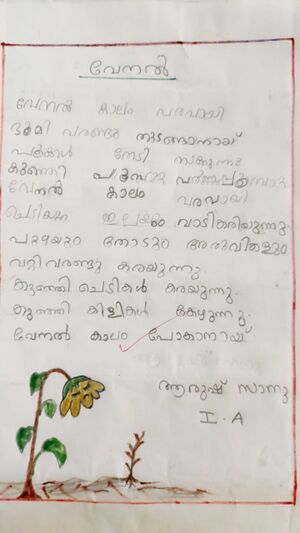 വേനൽ
വേനൽ കാലം വരവായി
ഭൂമി വരണ്ടു തുടങ്ങാനായ്
പൂക്കൾ തേടി നടക്കുന്ന
കുഞ്ഞി
വേനൽ കാലം വരവായി
ചെടിയും ഇലയും വാടികരിയുന്നു
പുഴയും തോടും അരുവികളും
വറ്റി വരണ്ടു കരയുന്നു.
കുഞ്ഞി ചെടികൾ കരയുന്നു.
കുഞ്ഞി കിളികൾ കേഴുന്നു.
വേനൽ കാലം പോകാനായ്
ആരുഷ് സാനു
I. A